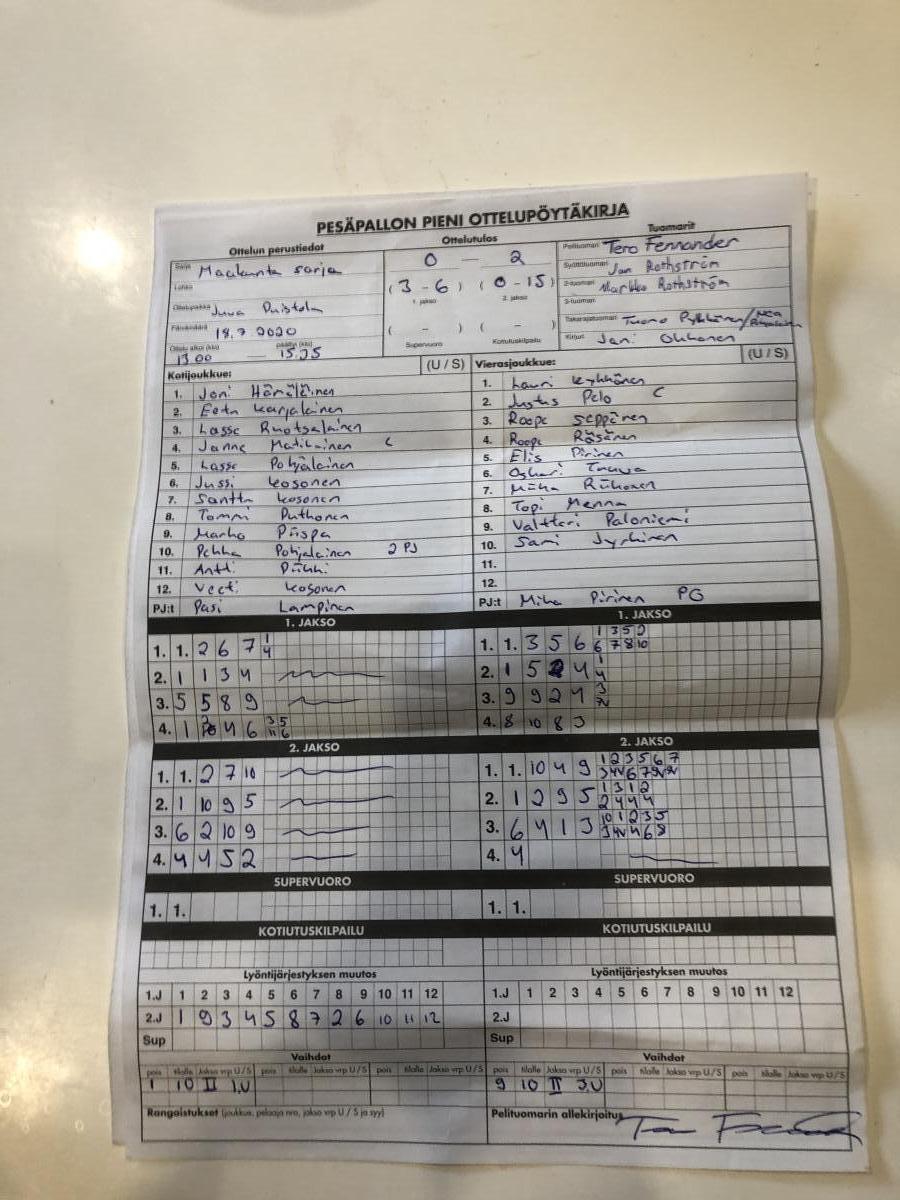 PESÄPALLON PIENI OTTELUPÖYTÄKIRJA
Ottelun perustiedot
Sarja Maakunta sarja
Lohko
Ottelupaikka Juva Puistola
Päivämäärä 18.7 2020
Ottelu alkoi (klo) 13.00 päättyi (klo) 15.35
Ottelutulos
0 — 2
( 3 - 6 ) ( 0 - 15 )
1. jakso 2. jakso
( - ) ( - )
Supervuoro Kotiutuskilpailu
Tuomarit
Pelituomari Tero Fennander
Syöttötuomari Jan Rothström
2-tuomari Markko Rothström
3-tuomari
Takarajatuomari Tuomo Pykkönen/
Kirjuri Jani Okkonen
Kotijoukkue: (U / S)
1. Joni Hämäläinen
2. Eetu Karjalainen
3. Lasse Ruotsalainen
4. Janne Matikainen C
5. Lasse Pohjalainen
6. Jussi Kosonen
7. Santtu Kosonen
8. Tommi Puthonen
9. Marko Piispa
10. Pekka Pohjalainen 2 PJ
11. Antti Piikki
12. Veeti Kosonen
PJ:t Pasi Lampinen
Vierasjoukkue: (U / S)
1. Lauri Kyhkönen
2. Justus Pelo C
3. Roope Seppänen
4. Roope Räsänen
5. Elis Pirinen
6. Oskari
7. Miika Riikonen
8. Topi Menna
9. Valtteri Paloniemi
10. Sami Jyrkinen
11.
12.
PJ:t Mika Pirinen PG
1. JAKSO
1. 1. 2 6 7 1 4
2. 1 1 3 4
3. 5 5 8 9
4. 1 4 6 3 5 11 6
1. JAKSO
1. 1. 3 5 6 1 3 5 2 6 7 8 10
2. 1 5 2 4 1 4
3. 9 9 2 7 3
4. 8 10 8 3
2. JAKSO
1. 1. 2 7 10
2. 1 10 9 5
3. 6 2 10 9
4. 4 4 5 2
2. JAKSO
1. 1. 10 4 9 1 2 3 5 6 7
2. 1 2 9 5 1 3 1 2 2 4 4 4
3. 6 4 1 3 10 1 2 3 5
4. 4
SUPERVUORO
1. 1.
SUPERVUORO
1. 1.
KOTIUTUSKILPAILU
KOTIUTUSKILPAILU
Lyöntijärjestyksen muutos
1.J 1 2 3 4 5 6 7 8 9 10 11 12
2.J 1 9 3 4 5 8 7 2 6 10 11 12
Sup
Lyöntijärjestyksen muutos
1.J 1 2 3 4 5 6 7 8 9 10 11 12
2.J
Sup
Vaihdot
pois tilalle Jakso vrp U / S pois tilalle Jakso vrp U / S pois tilalle Jakso vrp U / S
1 10 II 1.U
Vaihdot
pois tilalle Jakso vrp U / S pois tilalle Jakso vrp U / S pois tilalle Jakso vrp U / S
9 10 II 3.U
Rangaistukset (joukkue, pelaaja nro, jakso vrp U / S ja syy)
Pelituomarin allekirjoitus